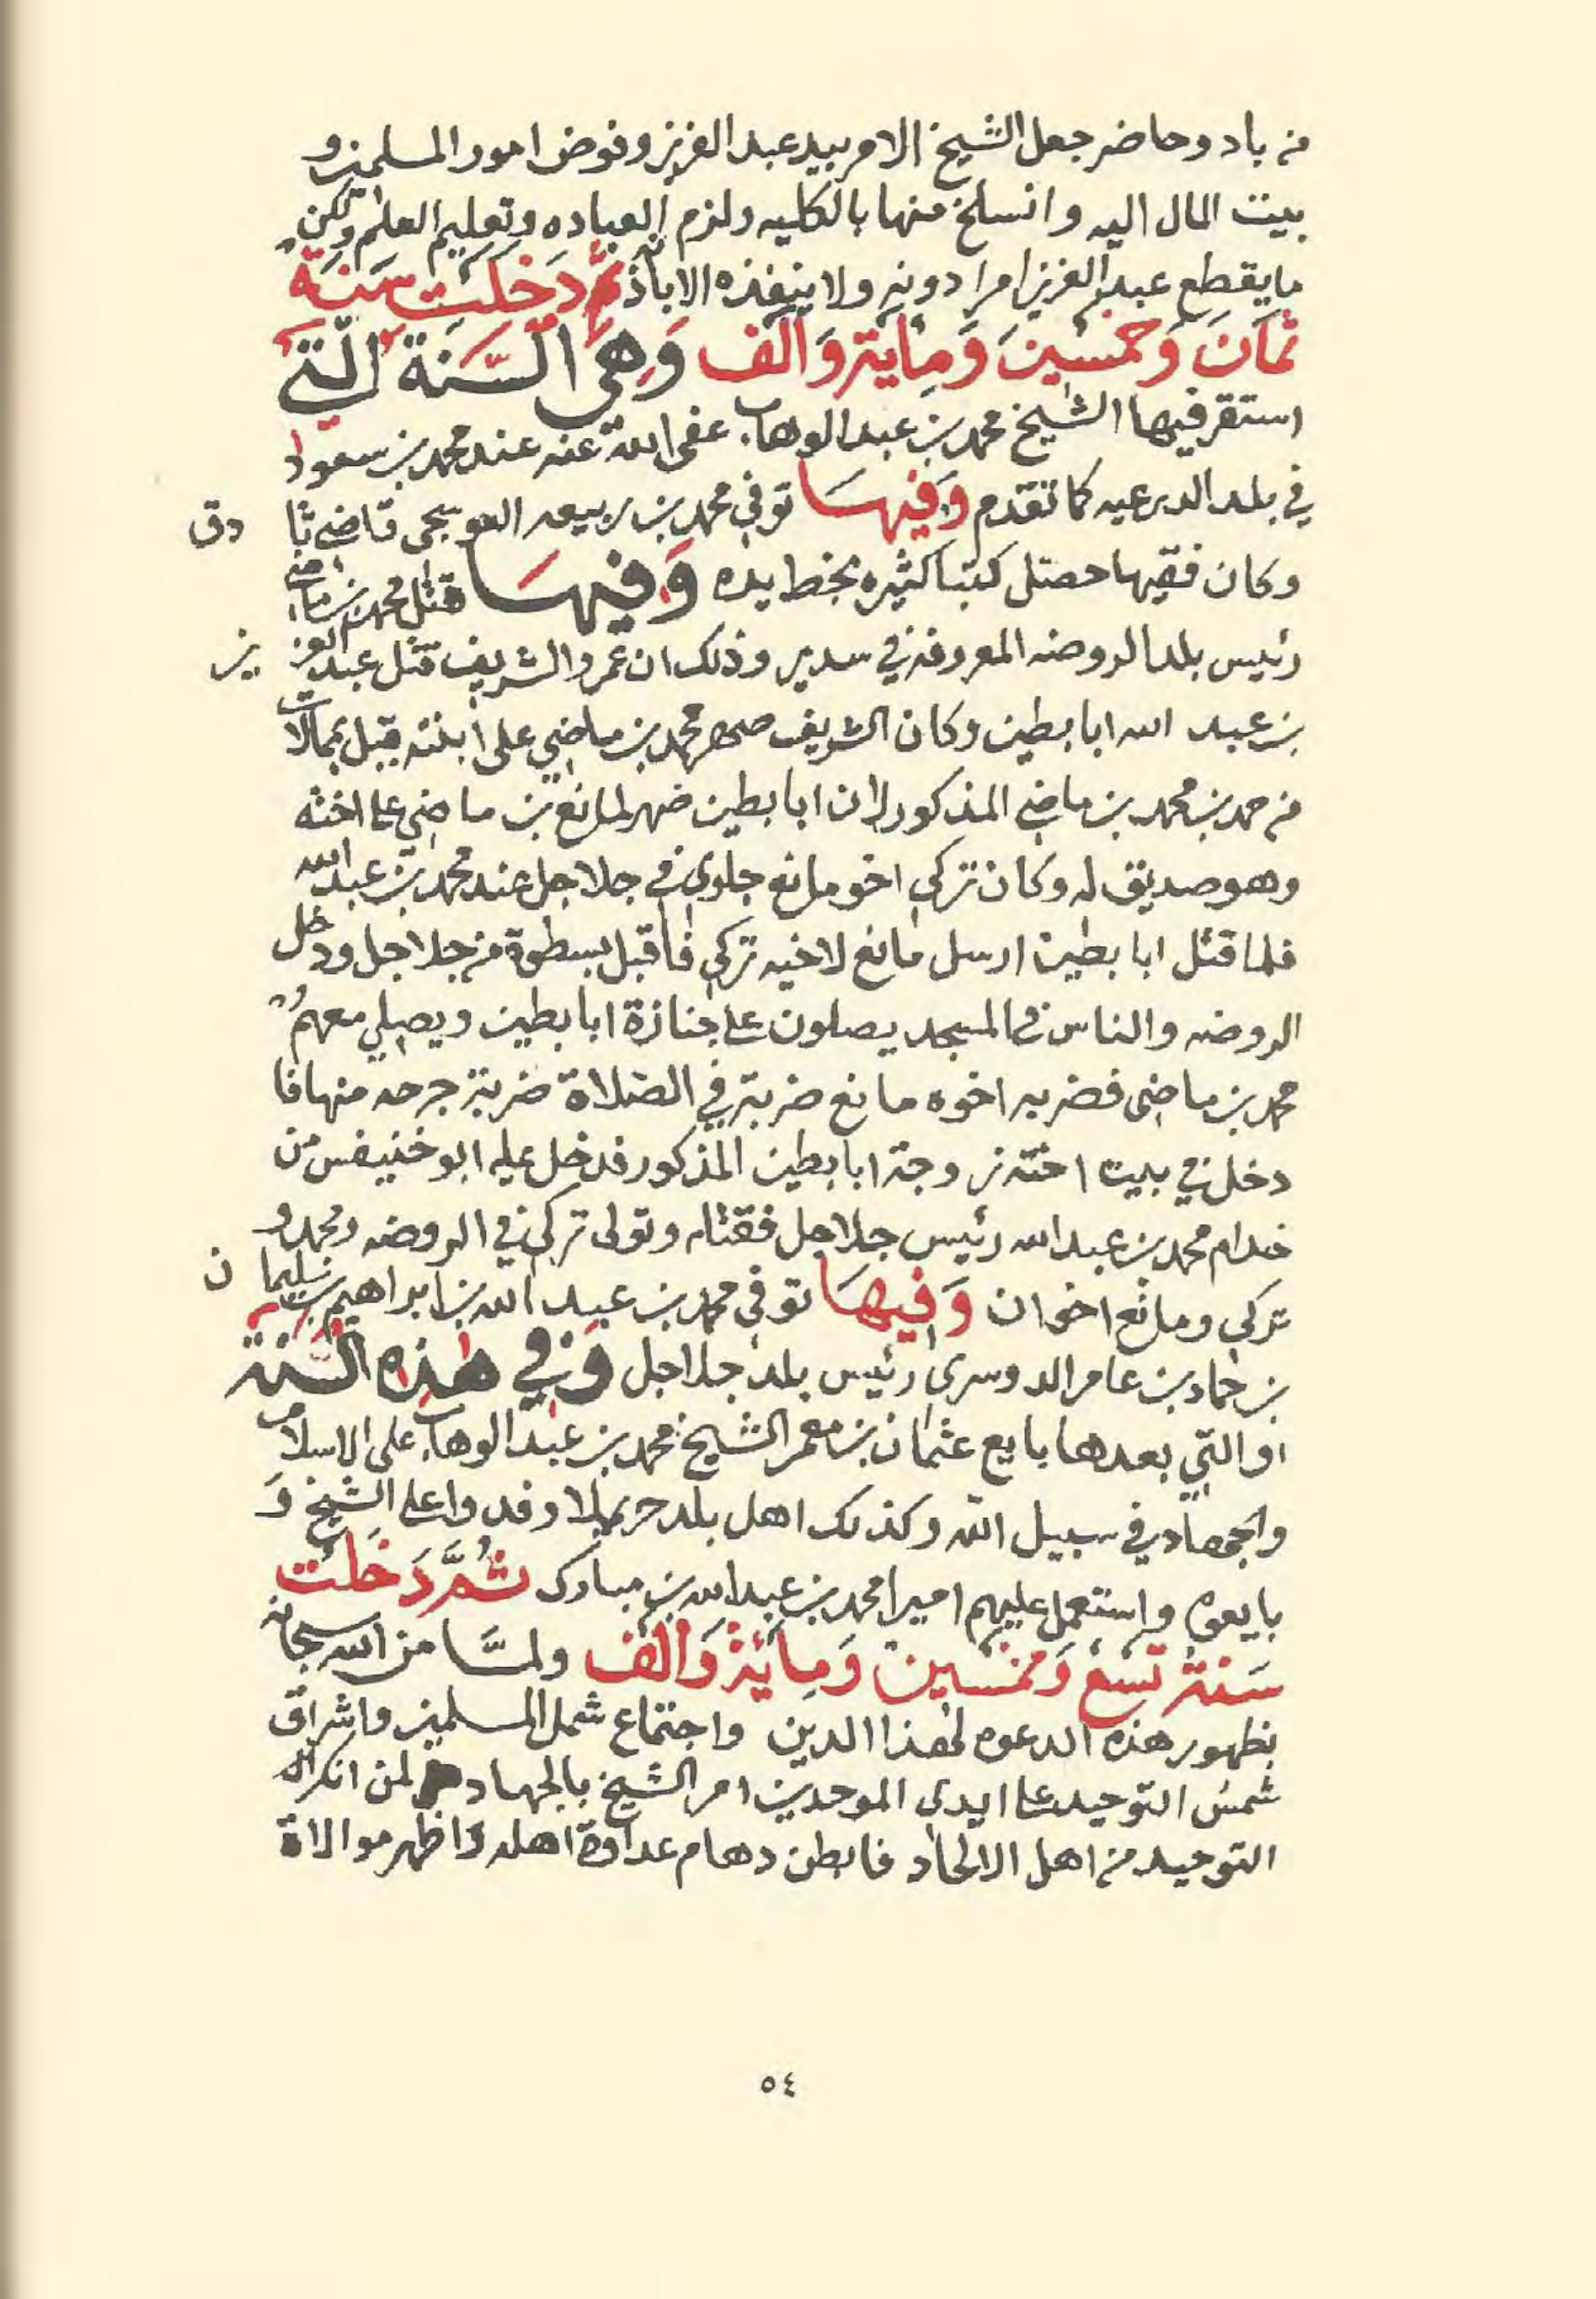 من باد وحاضر جعل الشيخ الامر بيد عبد العزيز وفوض امور المسلمين و
بيت المال اليه وانسلخ منها بالكليه ولزم العباده وتعليم العلم ولكن
ما يقطع عبد العزيز امرا دونه ولا ينفذه الا باذنه ثم دخلت سنة
ثمان وخمسين وماية والف وهي السنة التي
استقر فيها الشيخ محمد بن عبد الوهاب عفى الله عنه عند محمد بن سعود
في بلد الدرعيه كما تقدم وفيها توفي محمد بن ربيعه العوسجي قاضي ثا دق
وكان فقيها حصل كتبا كثيره بخط يده وفيها قتل محمد بن ماضي
رئيس بلد الروضه المعروفة في سدير وذلك ان عمر والشريف قتل عبد العز يز
بن عبد الله ابا بطين وكان الشريف صهر محمد بن ماضي على ابنته قيل بممالات
من حمد بن محمد بن ماضي المذكور لان ابا بطين ضهر لمانع بن ماضي على اخته
وهو صديق له وكان تركي اخو مانع جلوي في جلاجل عند محمد بن عبد الله
فلما قتل ابا بطين ارسل مانع لاخيه تركي فاقبل بسطوة من جلاجل ودخل
الروضه والناس في المسجد يصلون على جنازة ابا بطين ويصلي معهم
محمد بن ماضي فضربه اخوه مانع ضربة في الصلاة ضربة جرحه منها فا
دخل في بيت اخته زوجة ابا بطين المذكور فدخل عليه ابو خنيفس من
خدام محمد بن عبد الله رئيس جلاجل فقتله وتولى تركي في الروضه ومحمد و
تركي ومانع اخوان وفيها توفي محمد بن عبد الله بن ابراهيم بن سليما ن
بن حماد بن عامر الدوسري رئيس بلد جلاجل وفي هذه السنة
او التي بعدها بايع عثمان بن معمر الشيخ محمد بن عبد الوهاب على الاسلام
والجهاد في سبيل الله وكذلك اهل بلد حريملا وفدوا على الشيخ و
بايعوه واستعمل عليهم اميرا محمد بن عبد الله بن مبارك ثم دخلت
سنة تسع وخمسين ومائة والف ولما من الله سبحانه
بظهور هذه الدعوه لهذا الدين واجتماع شمل المسلمين واشراق
شمس التوحيد على ايدي الموحدين امر الشيخ بالجهاد لمن انكر
التوحيد من اهل الالحاد فابطن دهام عداوة اهله واظهر موالاة
٥٤